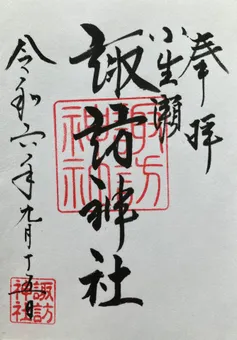 奉拝
小生瀬
諏訪神社
令和六年九月十五日
諏訪
神社